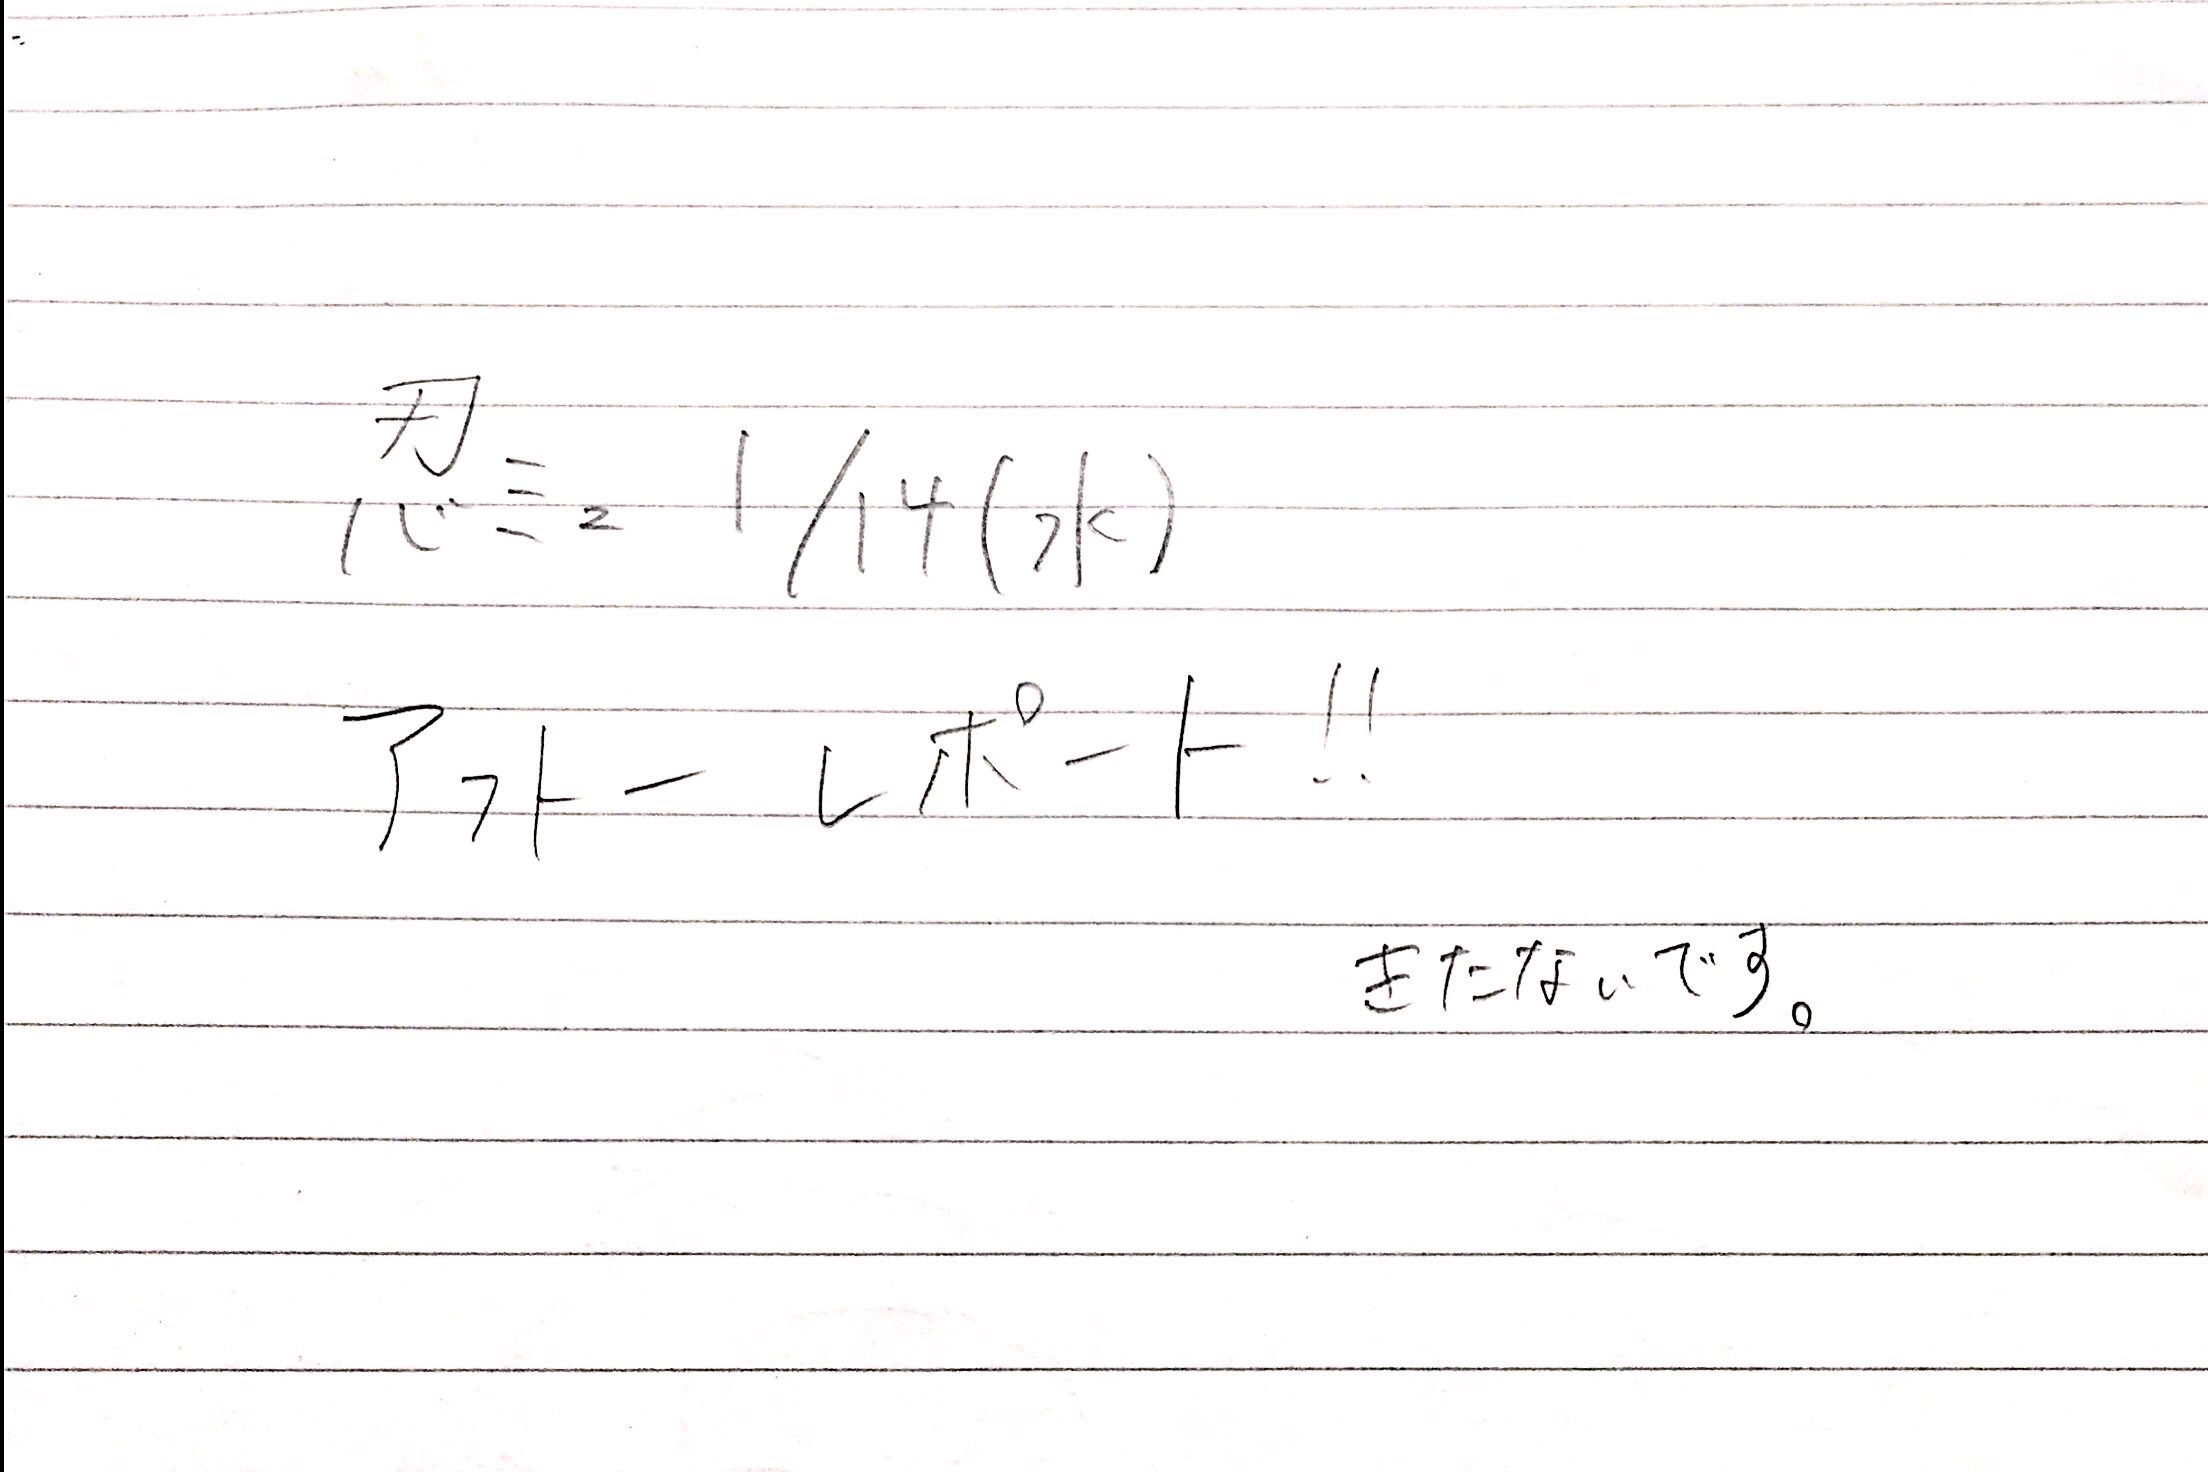 忍ミュ 1/14(水)
アフトー レポート!!
きたないです。